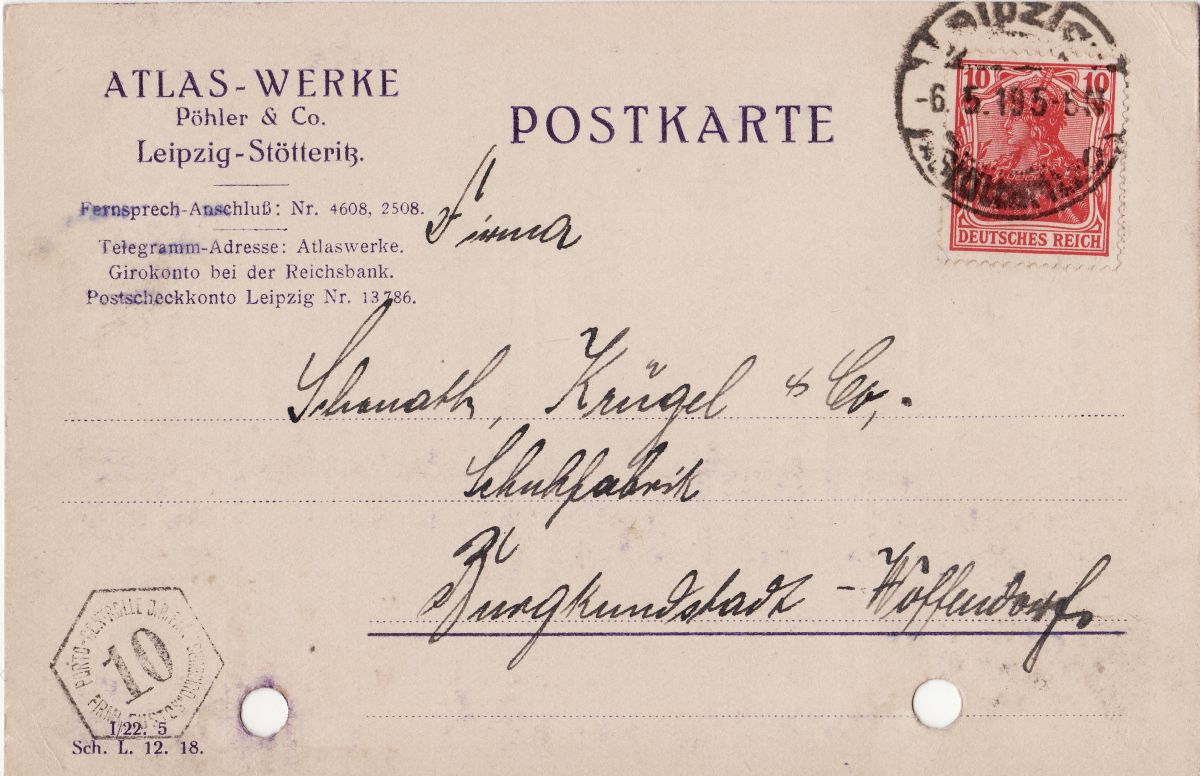 ATLAS-WERKE
Pöhler & Co.
Leipzig-Stötteritz.
Fernsprech-Anschluß: Nr. 4608, 2508.
Telegramm-Adresse: Atlaswerke.
Girokonto bei der Reichsbank.
Postscheckkonto Leipzig Nr. 13786.
POSTKARTE
Leipzig
-6.5.19 5-6N
10 10
DEUTSCHES REICH
Firma
Schonath, Krügel & Co,.
Schuhfabrik
Burgkundstadt - Wöffendorf.
10
I/22. 5
Sch. L. 12. 18.